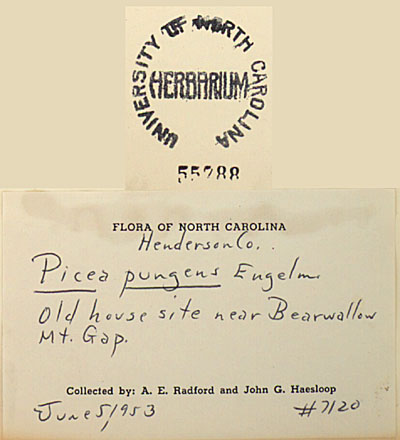 UNIVERSITY OF NORTH CAROLINA
HERBARIUM
55788
FLORA OF NORTH CAROLINA
Henderson Co.
Picea pungens Engelm.
Old house site near Bearwallow
Mt. Gap.
Collected by: A. E. Radford and John G. Haesloop
June 5, 1953 #7120